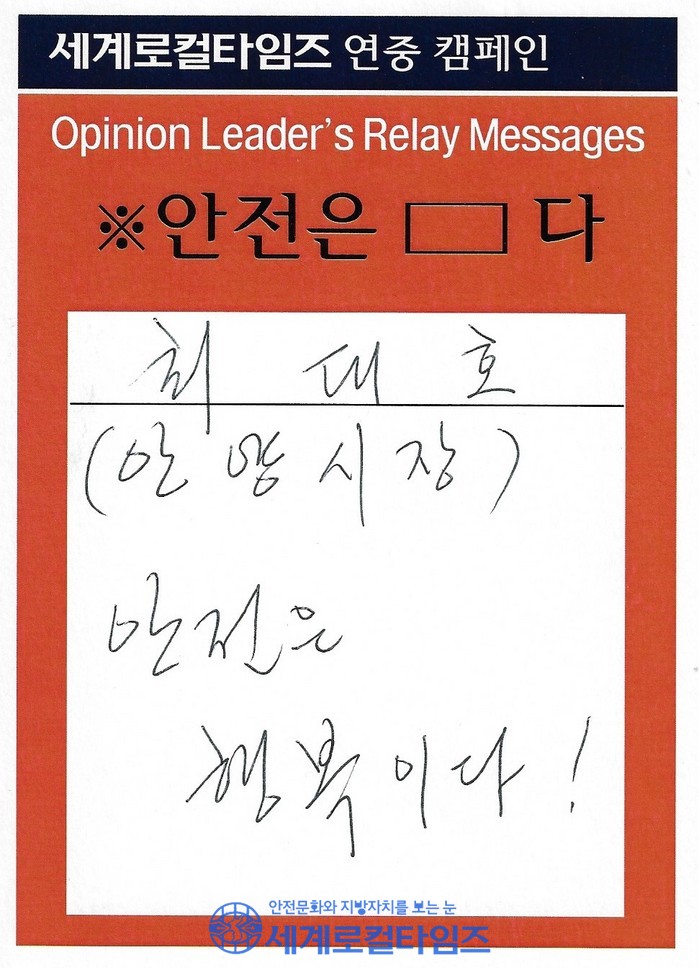 세계로컬타임즈 연중 캠페인
Opinion Leader's Relay Messages
※안전은 □ 다
최 대 호
(안양시장)
안전은
행복이다!
안전문화와 지방자치를 보는 눈
세계로컬타임즈